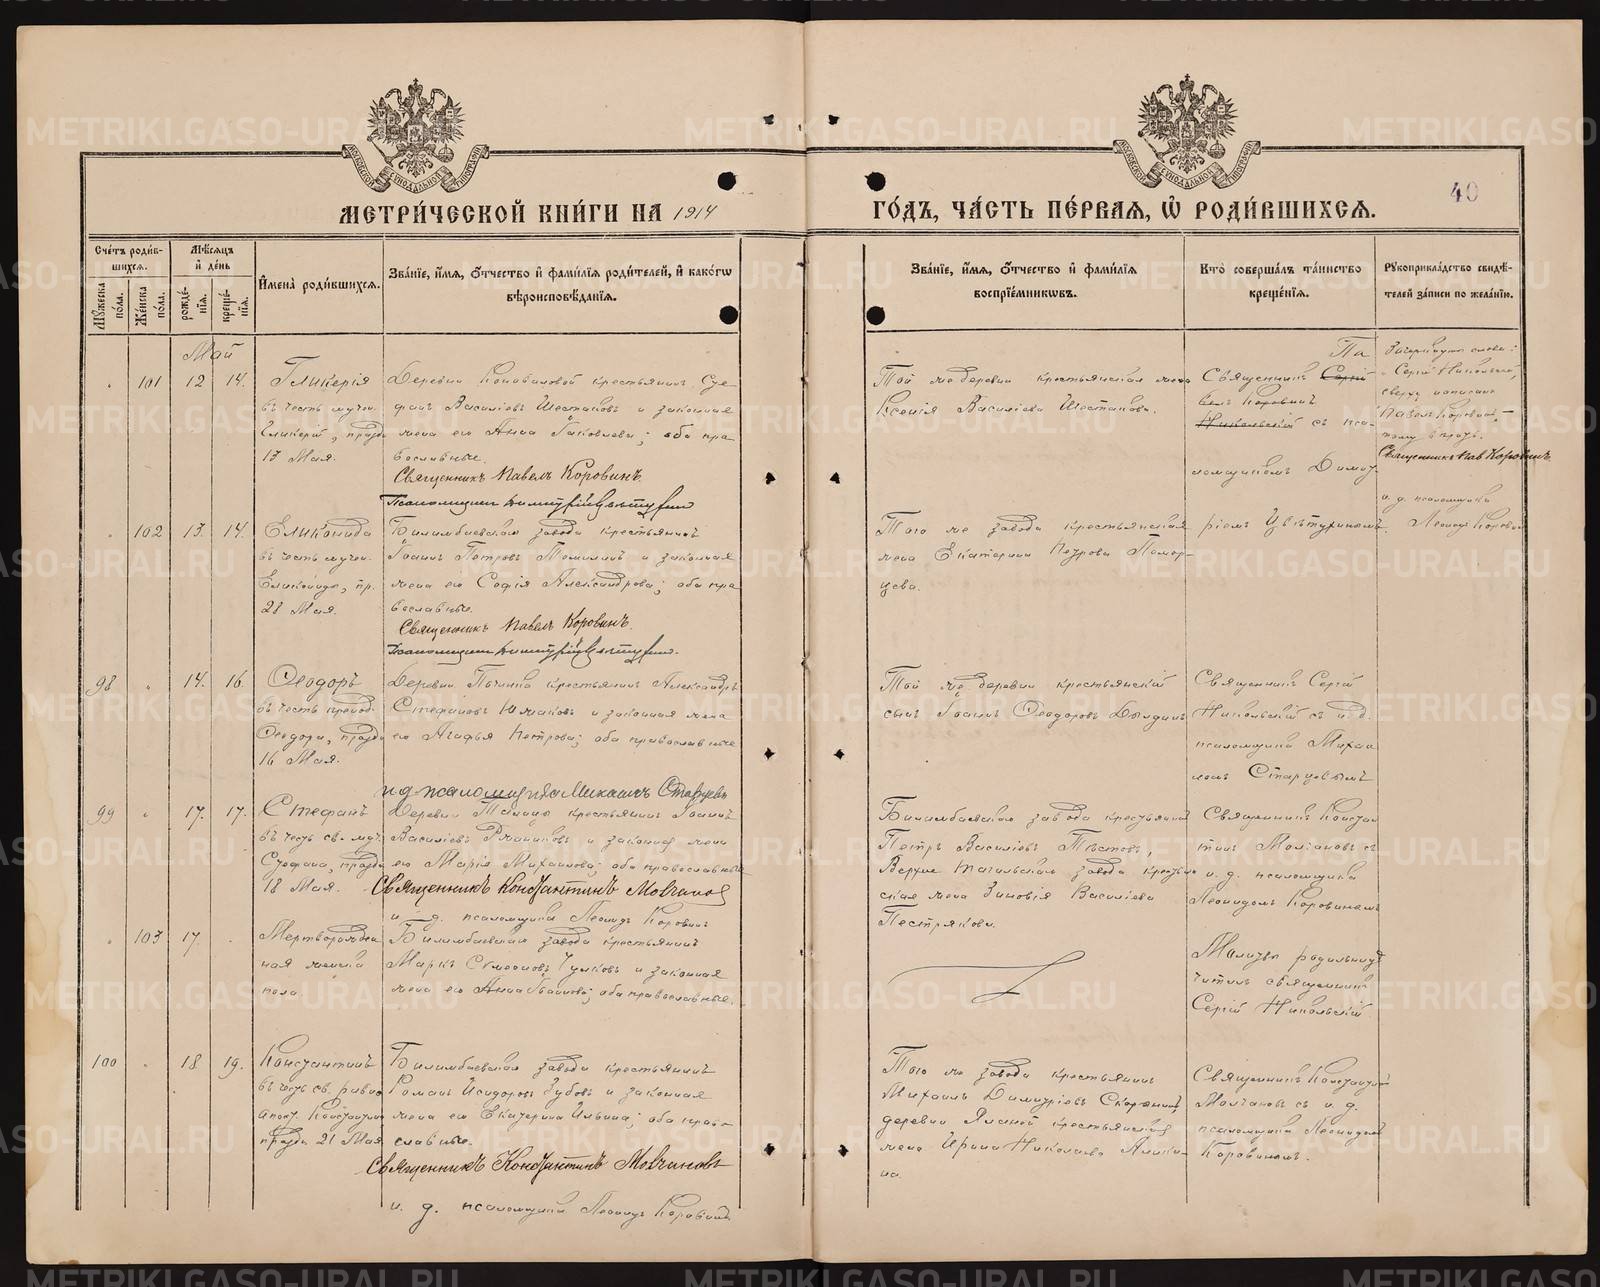 METRIKI.GASO-URAL.RU
МЕТРИ́ЧЕСКОЙ КНИ́ГИ НА 1914
ГО́ДЪ, ЧА́СТЬ ПЕ́РВАЯ, Ѡ҆ РОДИ́ВШИХСЯ.
40
Сче́тъ роди́в-
шихся.
Мѣ́сяцъ
и҆ де́нь
Мꙋ́жеска
по́ла.
Же́нска
по́ла.
рожде́-
нїя.
креще́-
нїя.
И҆мена̀ роди́вшихся.
Зва́нїе, и҆́мя, ѻ҆́тчество и҆ фами́лїя роди́телей, и҆ како́гѡ
вѣроисповѣ́данїя.
Зва́нїе, и҆́мя, ѻ҆́тчество и҆ фами́лїя
воспрїе́мникѡвъ.
Кто̀ соверша́лъ та́инство
креще́нїя.
Рꙋкоприкла́дство свидѣ́-
телей за́писи по жела́нїю.
Май
101 12 14.
Гликерія
въ честь мучен.
Гликеріи, празд.
13 Мая.
Деревни Коноваловой крестьянинъ
Василіевъ Шестаковъ и законная
жена его Анна Яковлева; оба пра
вославные.
Священникъ Павелъ Коровинъ.
Псаломщикъ Димитрій Цвѣтухинъ
Той же деревни крестьянская жена
Ксенія Василіева Шестакова.
Па
Священникъ Сергій
велъ Коровинъ
Никольскій съ пса-
ломщикомъ Димит
ріемъ Цвѣтухинымъ
Зачеркнуто слова:
Сергій Никольскій,
сверху написано
Павелъ Коровинъ
Священникъ Пав Коровинъ.
и. д. псаломщика
Леонидъ Коровин
102 13. 14.
Еликонида
въ честь мучен.
Еликониды, пр.
28 Мая.
Билимбаевскаго завода крестьянинъ
Іоаннъ Петровъ Томилинъ и законная
жена его Софія Александрова; оба пра
вославные.
Священникъ Павелъ Коровинъ.
Псаломщикъ Димитрій Цвѣтухинъ.
Того же завода крестьянская
жена Екатерина Петрова Помор-
цева.
98 14. 16.
Ѳеодоръ
въ честь препод.
Ѳеодора, празд
16 Мая.
Деревни Починка крестьянинъ Александръ
Стефановъ Южаковъ и законная жена
его Агафья Петрова; оба православные
и д псаломщика Михаилъ Старцевъ
Той же деревни крестьянскій
сынъ Іоаннъ Ѳеодоровъ Дылдинъ
Священникъ Сергій
Никольскій съ и. д.
псаломщика Михаи
ломъ Старцевымъ
99 17. 17.
Стефанъ
въ честь св. муч.
Стефана, празд
18 Мая.
Деревни крестьянинъ Іоаннъ
Василіевъ и законная жена
его Марія Михаилова; оба православные
Священникъ Константинъ Молчановъ
и. д. псаломщика Леонидъ Коровинъ
Билимбаевскаго завода крестьянинъ
Петръ Василіевъ Пѣстовъ,
Верхне Тагильскаго завода крестьян
ская жена Зиновія Василіева
Пестрякова.
Священникъ Констан
тинъ Молчановъ съ
и. д. псаломщика
Леонидомъ Коровинымъ
103 17.
Мертворожден
ная женска
пола.
Билимбаевскаго завода крестьянинъ
Маркъ Симеоновъ Чулковъ и законная
жена его Анна Іоаннова; оба православные.
Молитву родильницѣ
читалъ священникъ
Сергій Никольскій.
100 18 19.
Константинъ
въ честь св. равно
апост. Константина
празд 21 Мая
Билимбаевскаго завода крестьянинъ
Романъ Исидоровъ Зубовъ и законная
жена его Екатерина Ильина; оба право
славные.
Священникъ Константинъ Молчановъ
и. д. псаломщика Леонидъ Коровинъ
Того же завода крестьянинъ
Михаилъ Димитріевъ Скорынинъ,
деревни Ясной крестьянская
жена Ирина Николаева Алики-
на.
Священникъ Константинъ
Молчановъ съ и. д.
псаломщика Леонидомъ
Коровинымъ.